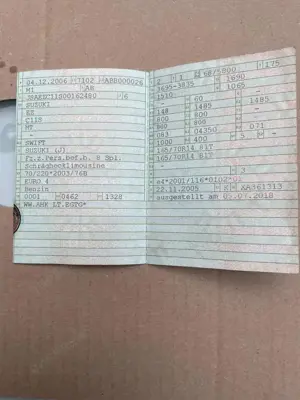 04.12.2006 7102 ABB000026
M1 AK
JSAEZC11S00162480 6
SUZUKI
EZ
C11S
MT
-
SWIFT
SUZUKI (J)
Fz.z.Pers.bef.b. 8 Spl.
Schräghecklimousine
70/220*2003/76B
EURO 4
Benzin
0001 0462 1328
WW.AHK LT.EGTG*
2 1 175
3695-3835 1690
1510 1065
- 60 -
148 1485
800 1485
800 -
860 04350 D71
083 3 -
1000 400
165/70R14 81T
165/70R14 81T
-
- 3
e4*2001/116*0102*02
22.11.2005 K XA361313
ausgestellt am 05.07.2018